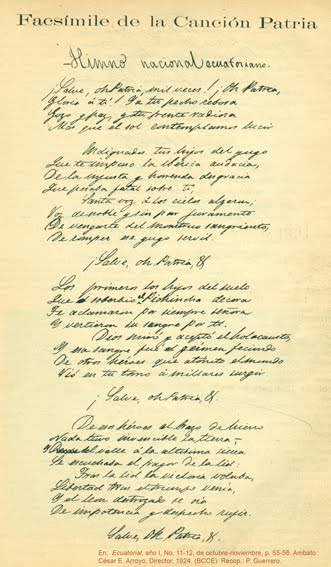 Facsímile de la Canción Patria
Himno nacional ecuatoriano.
¡Salve, oh Patria, mil veces! ¡Oh Patria,
Gloria á ti! Ya tu pecho rebosa
Gozo y paz, y tu frente radiosa
Más que el sol contemplamos lucir
Indignados tus hijos del yugo
Que te impuso la ibérica audacia,
De la injusta y horrenda desgracia
Que pesaba fatal sobre ti,
Santa voz á los cielos alzaron,
Voz de noble y sin par juramento
De vengarte del monstruo sangriento,
De romper ese yugo servil.
¡Salve, oh Patria, &
Los primeros los hijos del suelo
Que el soberbio Pichincha decora
Te aclamaron por siempre señora
Y vertieron su sangre por ti.
Dios miró y aceptó el holocausto,
Y esa sangre fué el germen fecundo
De otros héroes que atónito el mundo
Vió en tu torno á millares surgir.
¡Salve, oh Patria, &.
De esos héroes al brazo de hierro
Nada tuvo invencible la tierra
Y del valle á la altísima sierra
Se escuchaba el fragor de la lid:
Tras la lid la victoria volaba,
Libertad tras el triunfo venía,
Y al león destrozado se oía
De impotencia y despecho rugir.
Salve, Oh Patria, &.
En: Ecuatorial, año I, No. 11-12, de octubre-noviembre, p. 55-56. Ambato:
César E. Arroyo, Director, 1924. (BCCE). Recop.: P. Guerrero.